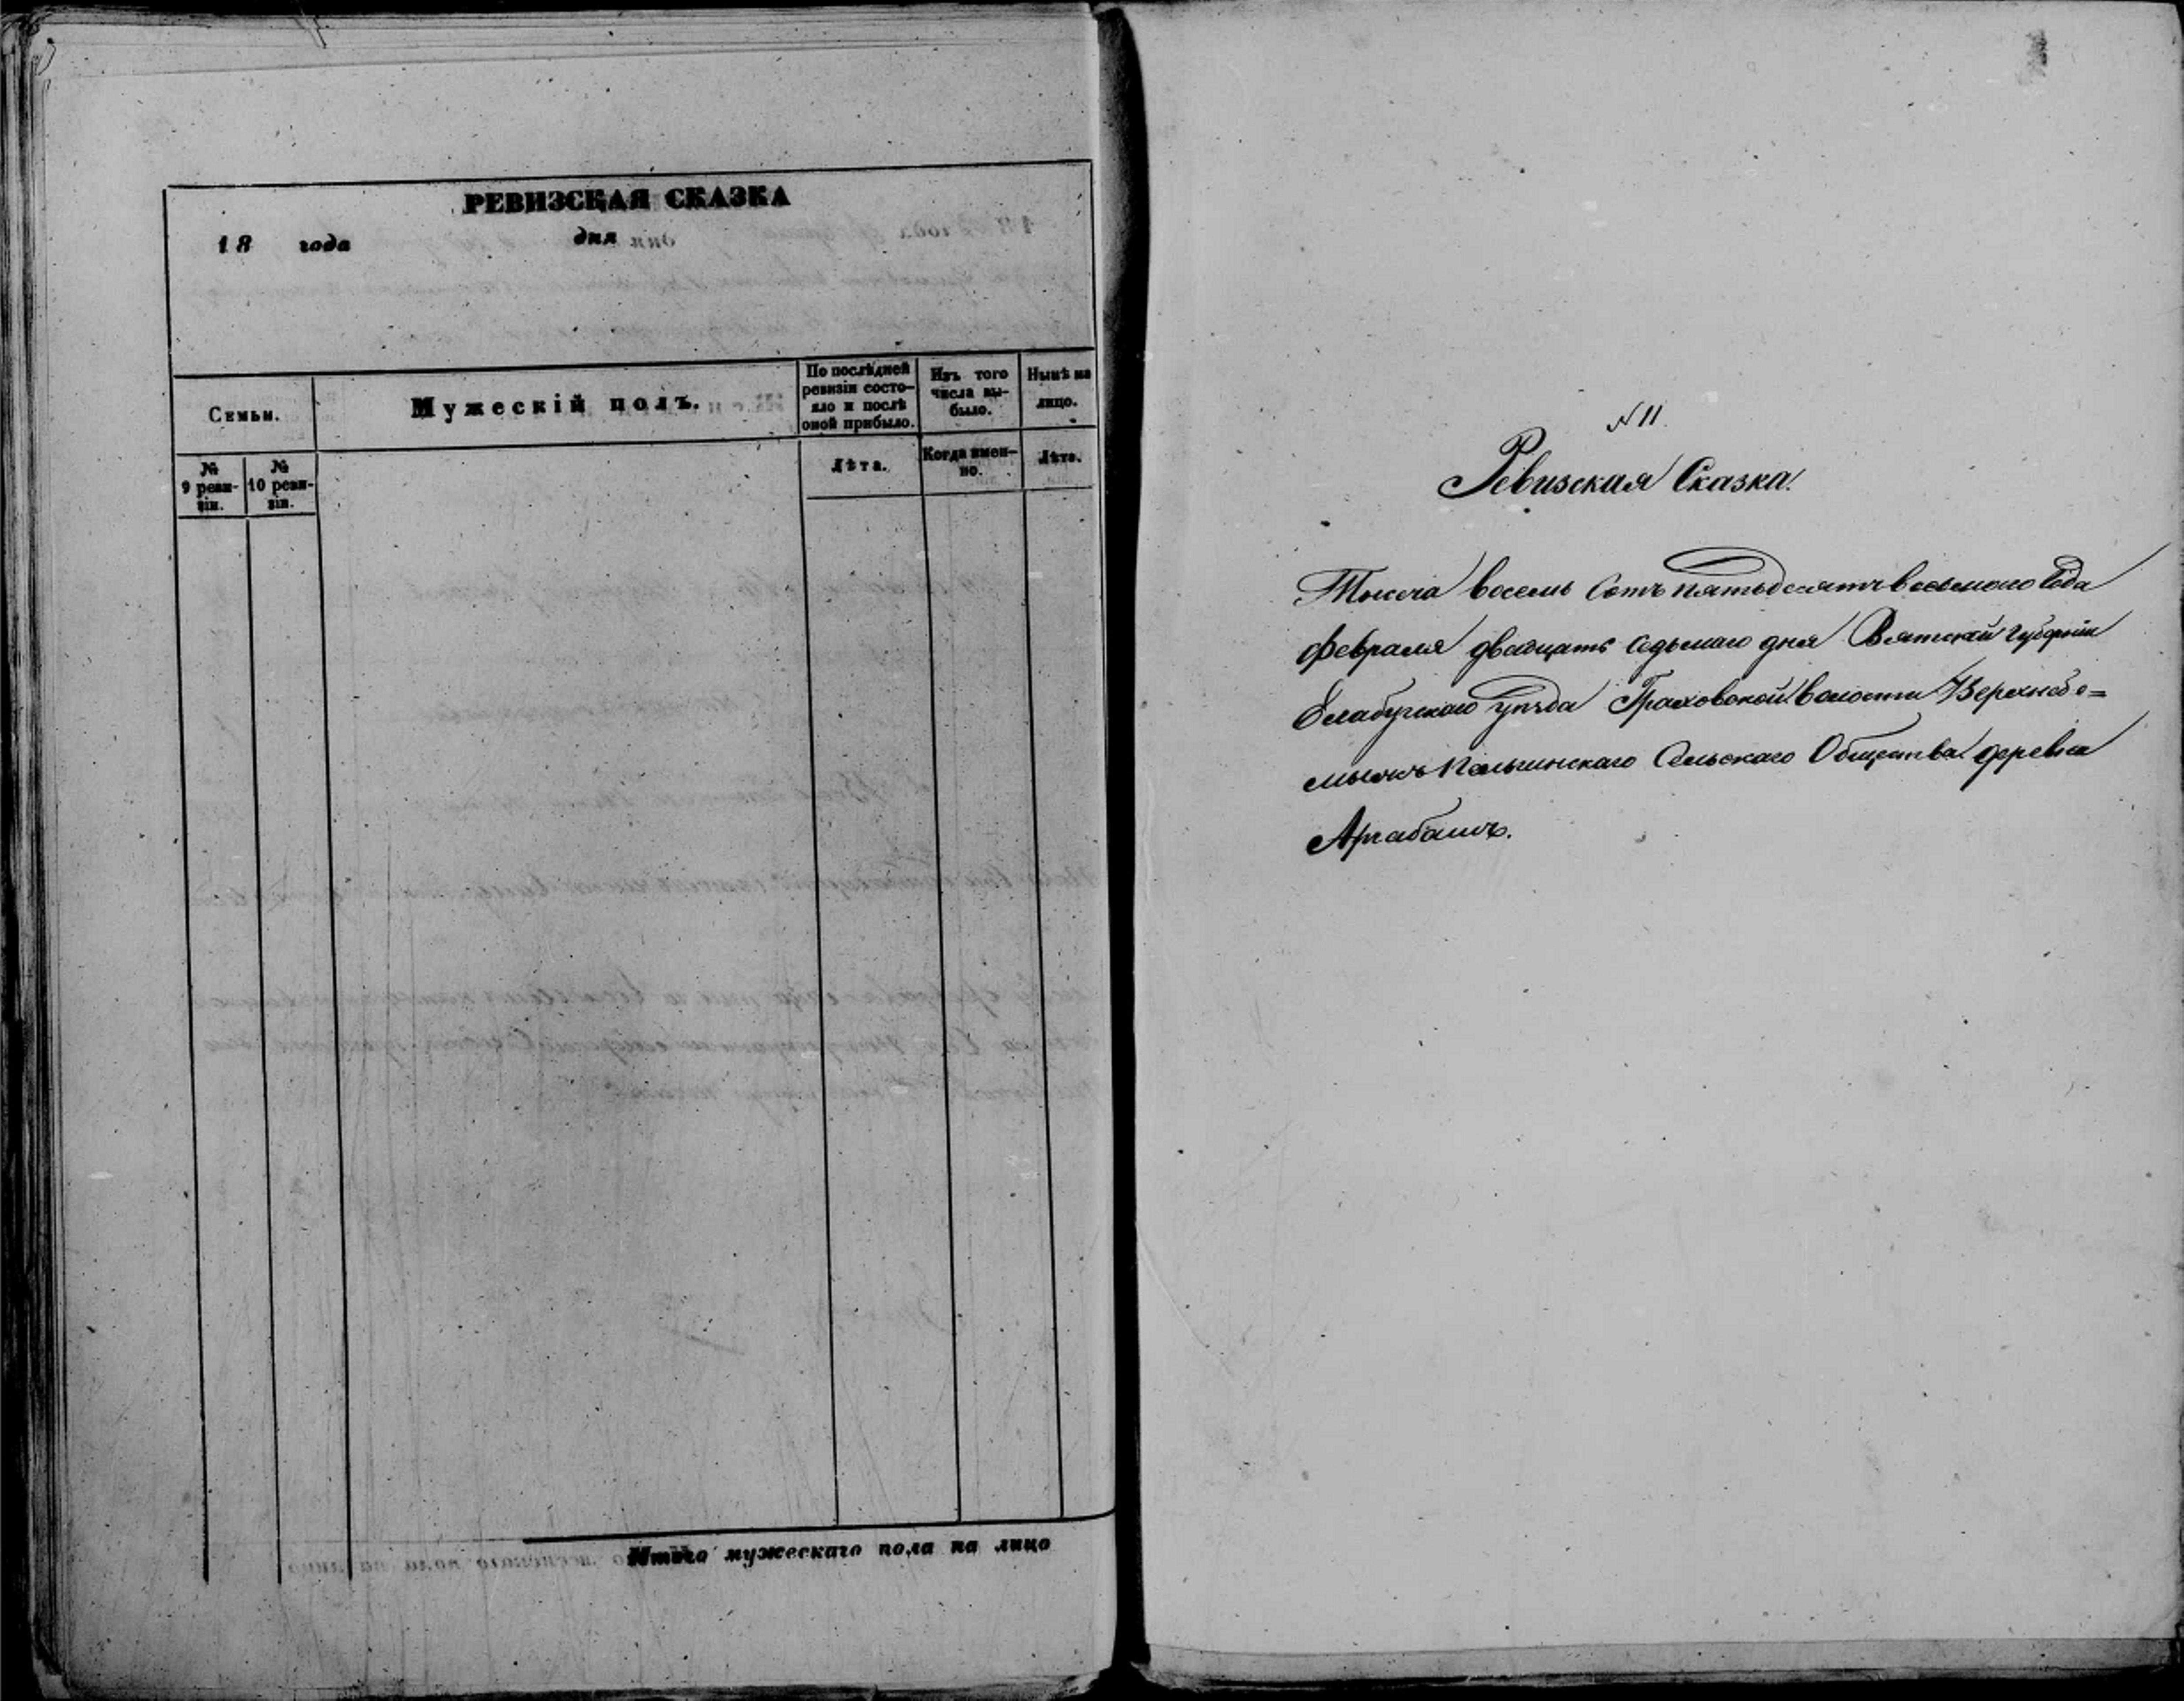 РЕВИЗСКАЯ СКАЗКА
18 года дня
Семьи.
Мужескій полъ.
По послѣдней ревизіи состояло и послѣ оной прибыло.
Изъ того числа выбыло.
Нынѣ на лицо.
№ 9 ревизіи.
№ 10 ревизіи.
Лѣта.
Когда именно.
Лѣта.
Итого мужескаго пола на лицо
N 11.
Ревизская Сказка.
Тысеча восемь сотъ пятьдесятъ восьмого Года
февраля двадцать седьмаго дня Вятской губерніи
Елабугскаго уѣзда Граховской волости Верхнебе=
мыжъ Сельскаго Общества деревня